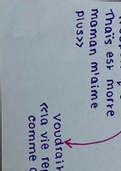 Thaïs est morre
maman m'aime
plus>>
voudrait
<<la vie re
comme